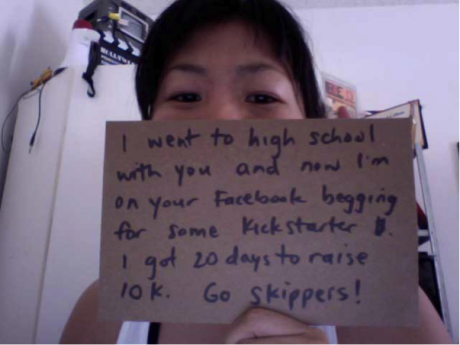 I went to high school
with you and now I'm
on your Facebook begging
for some Kickstarter $.
I got 20 days to raise
10K. Go Skippers!